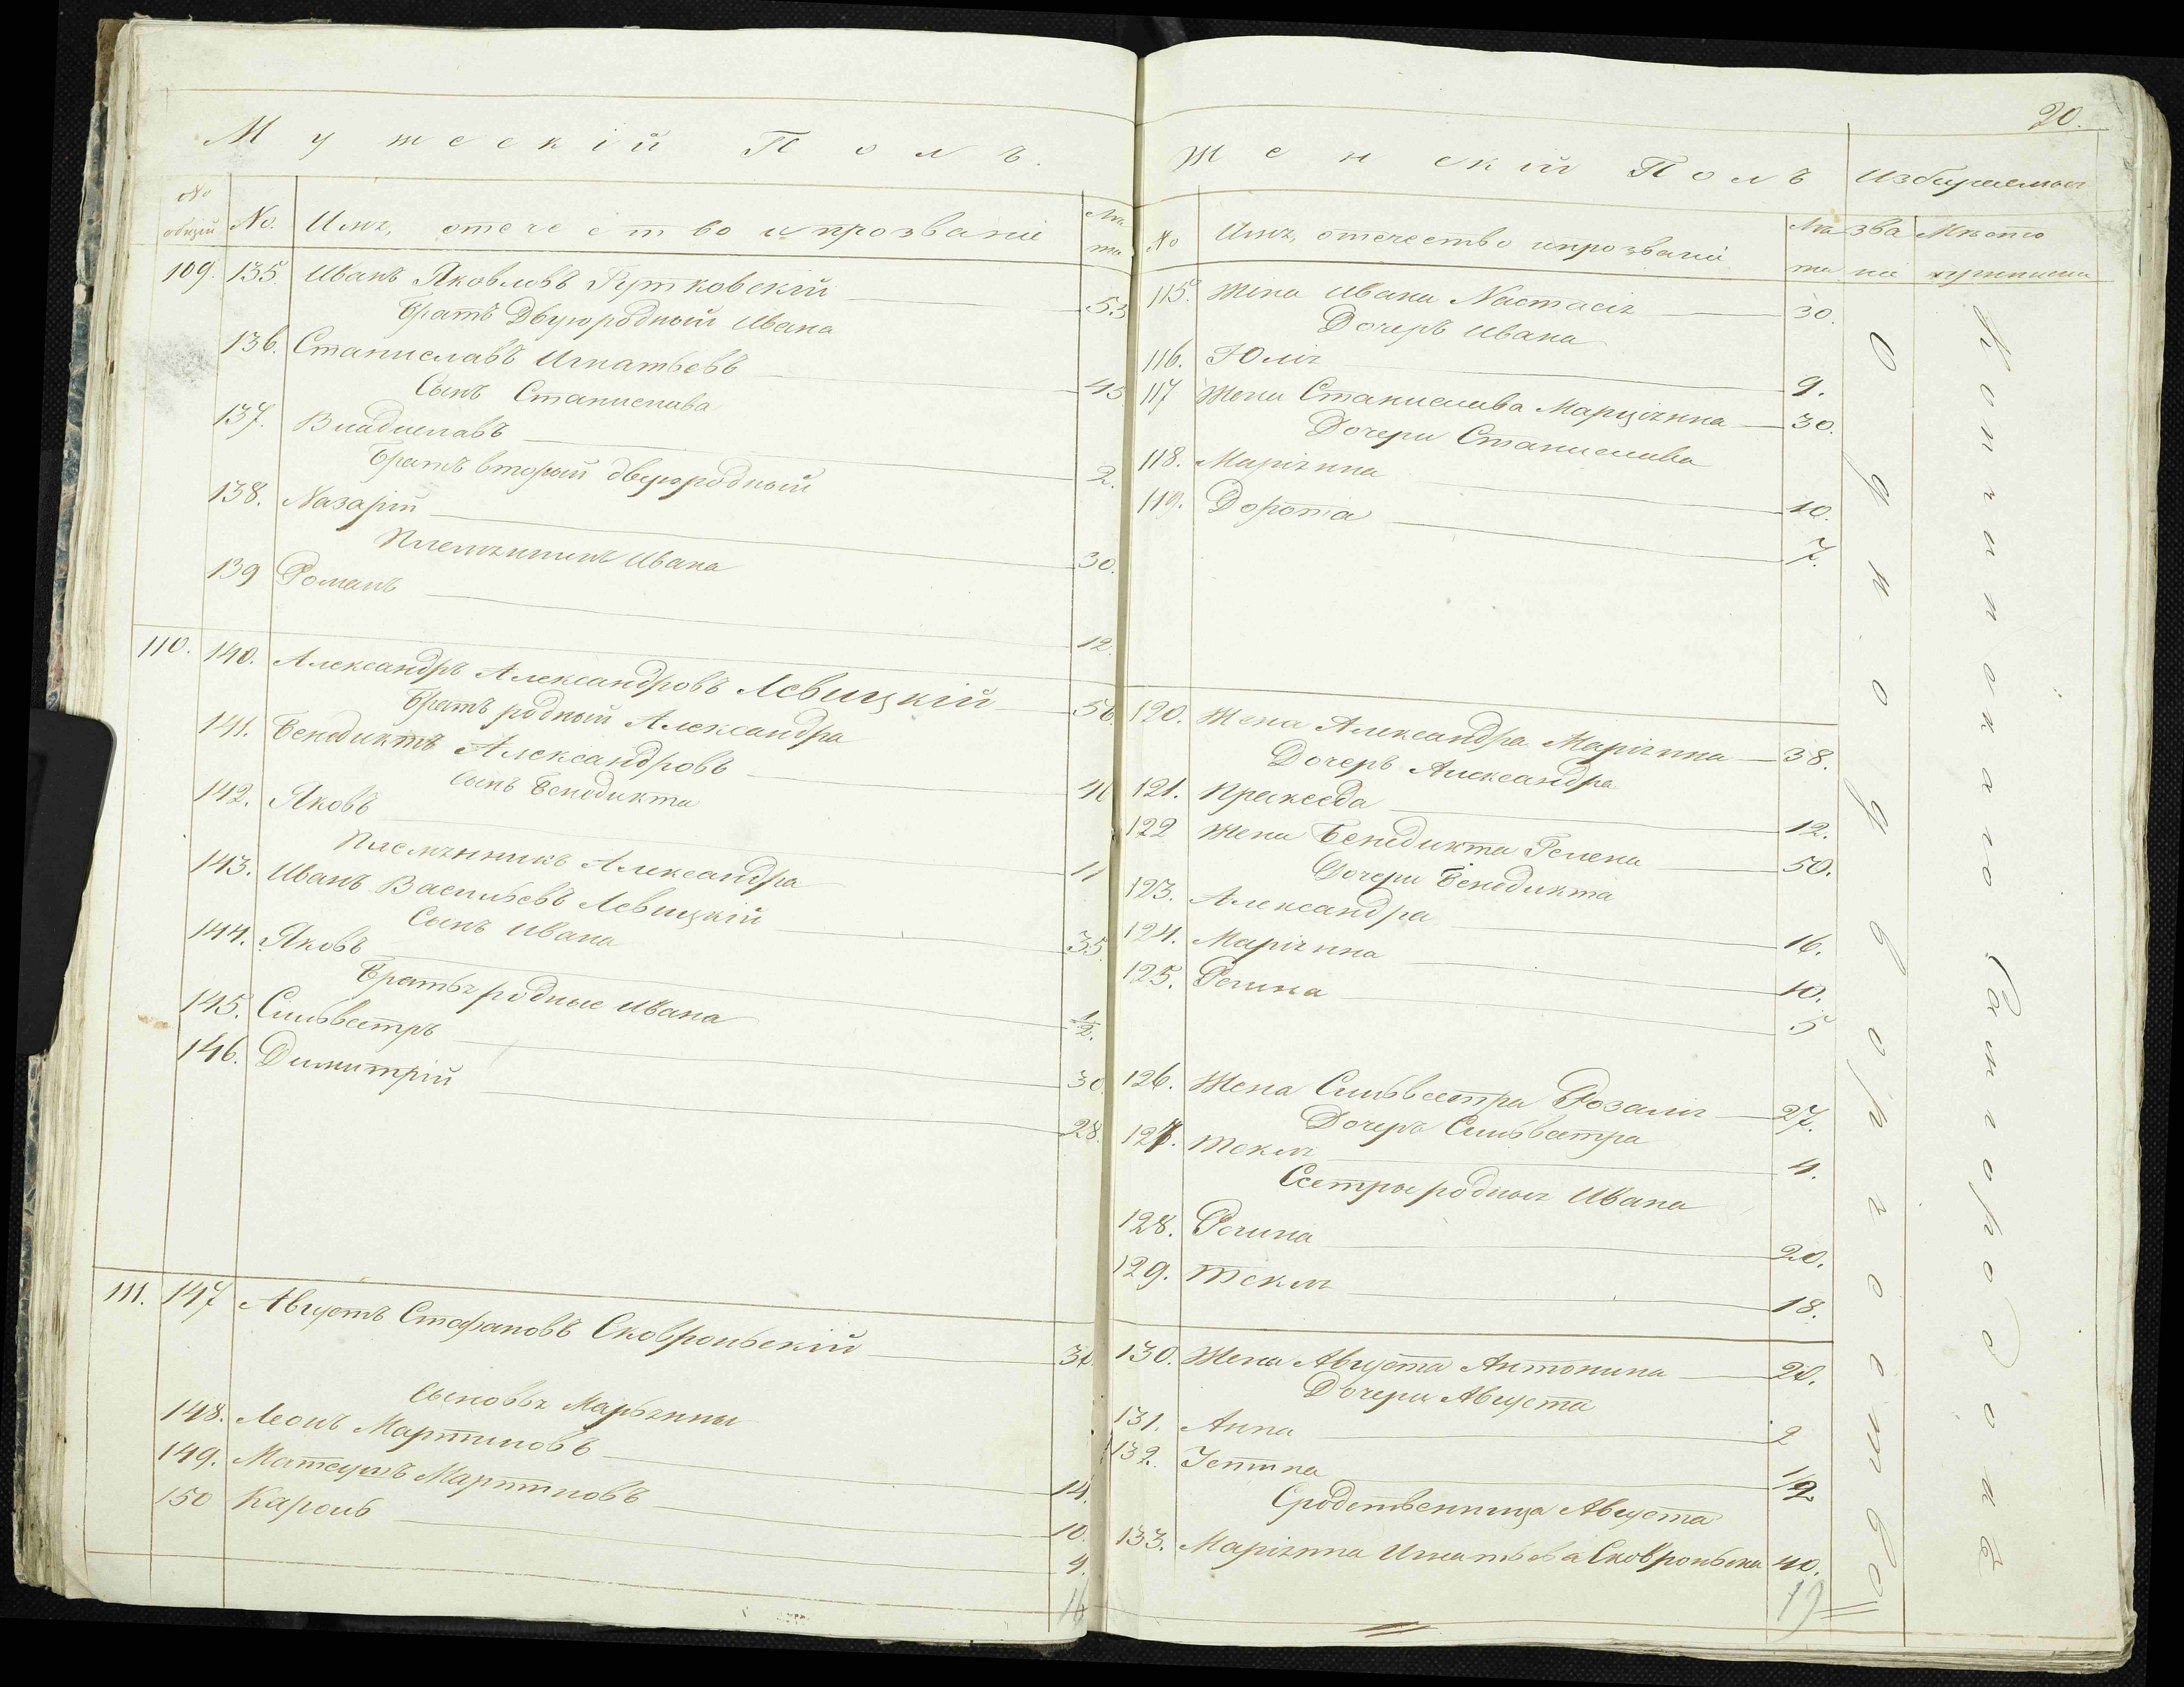 Мужескій Полъ.
№ общій
№.
Имя, отечество и прозваніе
Лѣта
109. 135. Иванъ Яковлевъ Рутковскій 53
Братъ Двуюродный Ивана
136. Станиславъ Игнатьевъ 45
Сынъ Станислава
137. Владиславъ 2.
Братъ вторый двуюродный
138. Назарій 30.
Племянникъ Ивана
139 Романъ 12.
110. 140. Александръ Александровъ Левицкій 56.
Братъ родный Александра
141. Бенедиктъ Александровъ 41
Сынъ Бенедикта
142. Яковъ 11
Племянникъ Александра
143. Иванъ Васильевъ Левицкій 35
Сынъ Ивана
144. Яковъ 1/2.
Братья родные Ивана
145. Сильвестръ 30
146. Димитрій 28.
111. 147 Августъ Стефановъ Сковроньскій
Сыновья Марьянны
148. Леонъ Мартиновъ 14.
149. Матеушъ Мартиновъ 10.
150 Кароль 4.
16
20.
Женскій Полъ
Избираемыя
№
Имя, отечество и прозваніе
Лѣта
званіе
Мѣсто
115. Жена Ивана Настасія 30.
Дочерь Ивана
116. Юлія 9.
117 Жена Станислава Марціянна 30.
Дочери Станислава
118. Маріянна 10.
119. Дорота 7.
120. Жена Александра Маріянна 38.
Дочерь Александра
121. Пракседа 12.
122 Жена Бенедикта Гелена 50.
Дочери Бенедикта
123. Александра 16.
124. Маріянна 10.
125. Регина 5
126. Жена Сильвестра Розалія 27.
Дочерь Сильвестра
127. Текля 4.
Сестры родныя Ивана
128. Регина 20.
129. Текля 18.
130. Жена Августа Антонина 20.
Дочери Августа
131. Анна 2
132. 1/2
Сродственница Августа
133. Маріянна Игнатьева Сковроньска 40.
19
Однодворчество